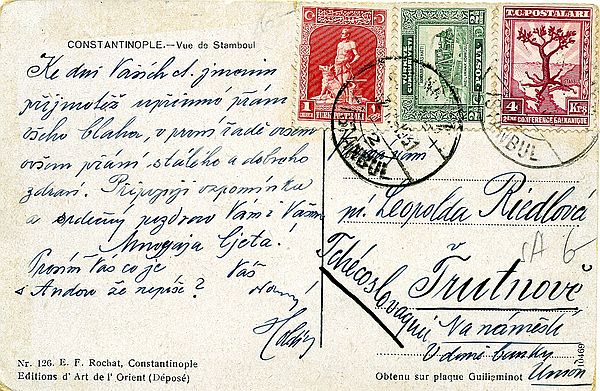 CONSTANTINOPLE.—Vue de Stamboul
Ke dni Vašich ct. jmenin
přijmětež upřímné přání
všeho blaha, v první řadě ovšem
ovšem přání stálého a dobrého
zdraví. Připojuji vzpomínku
a srdečný pozdrav Vám i Vašim
Mnogaja ljeta!
Prosím Vás co je Váš
s Andou že nepíše?
1 TURK POSTALARI 1
2½ 2½
T.C. POSTALARI
4 Krs
2EME CONFERENCE BALKANIQUE
ISTANBUL
ISTANBUL
pí. Leopolda Riedlová
Trutnově
Tchécoslovaquie
Na náměstí
V domě banky
Union
Nr. 126. E. F. Rochat, Constantinople
Editions d'Art de l'Orient (Déposé)
Obtenu sur plaque Guilleminot
10469